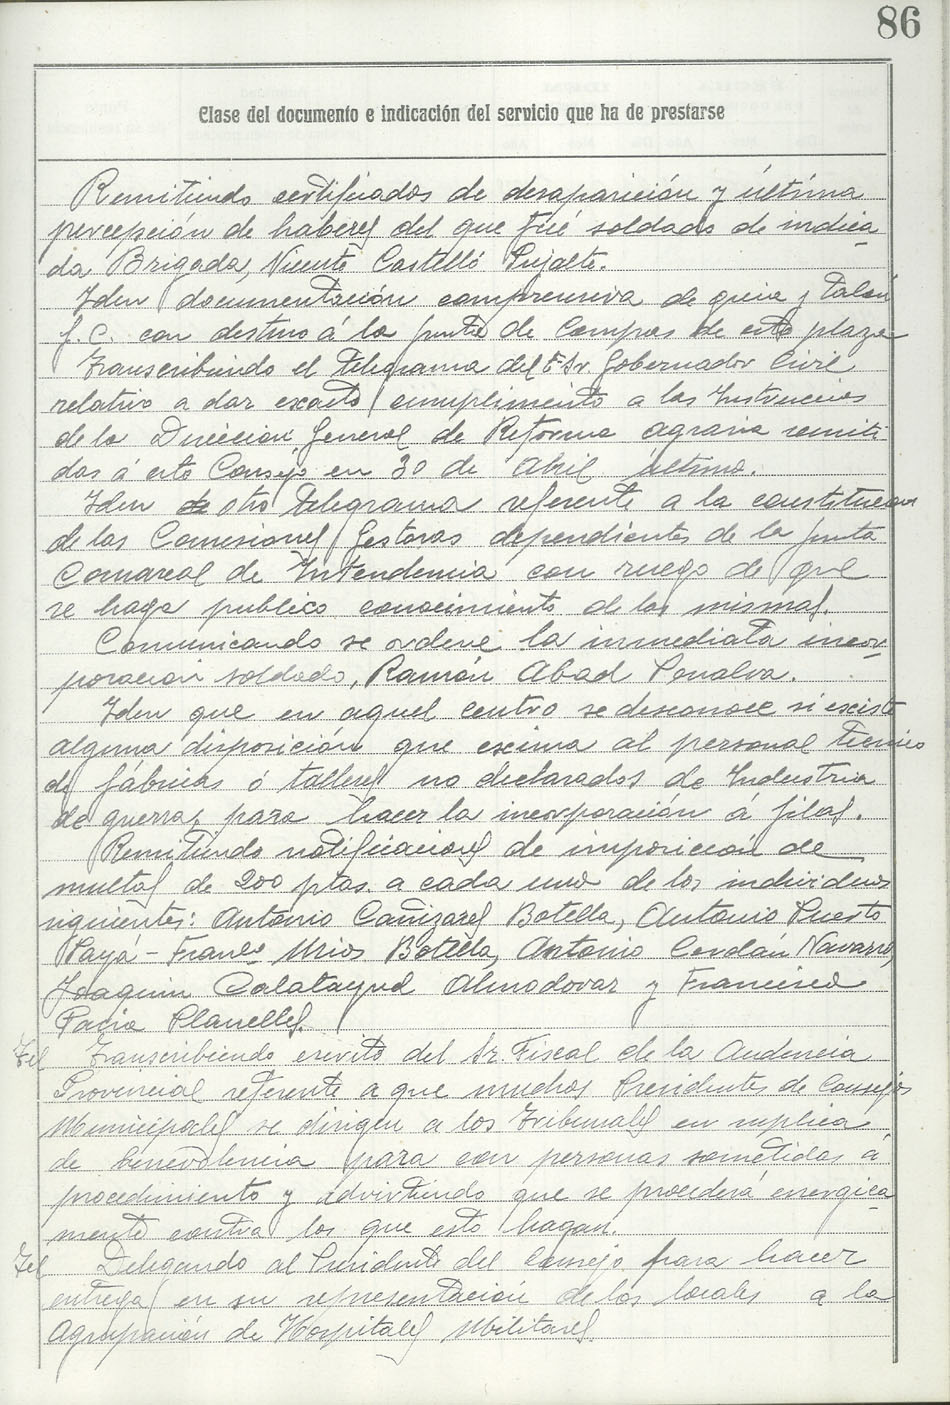 86
Clase del documento e indicación del servicio que ha de prestarse
Remitiendo certificados de desaparición y última
percepción de haberes del que fué soldado de indica
da Brigada, Vicente Castelló Prijalte.
Iden documentación comprensiva de guia y talón
f.C. con destino á la junta de Compras de esta plaza
Transcribiendo el telegrama del E. Sr. Gobernador Civil
relativo a dar exacto cumplimiento a las Instrucions
de la Dirección General de Reforma agraria remiti-
das á este Consejo en 30 de Abril último.
Iden otro telegrama referente a la constitucion
de las Comisiones Gestoras dependientes de la junta
Comarcal de Intendencia con ruego de que
se haga publico conocimiento de las mismas.
Comunicando se ordene la inmediata incor
poracion soldado, Ramón Abad Penalva.
Iden que en aquel centro se desconoce si existe
alguna disposición que exima al personal tecnico
de fábricas ó talleres no declarados de Industria
de guerra, para hacer la incorporación á filas.
Remitiendo notificaciones de imposición de
multas de 200 ptas. a cada uno de los individuos
siguientes: Antonio Cañizares Botella, Antonio Puerto
Payá - Franco Mios Botella, Antonio Cerdán Navarro,
Joaquin Calatayud Almodovar y Francisco
Pacia Planelles.
Tel Transcribiendo escrito del Sr. Fiscal de la Audencia
Provincial referente a que muchos Presidentes de Consejos
Municipales se dirigen a los Tribunales en suplica
de benevolencia para con personas sometidas á
procedimiento y advirtiendo que se procederá energica
mente contra los que esto hagan.
Tel Delegando al Presidente del Consejo para hacer
entrega en su representación de los locales a la
Agrupación de Hospitales Militares.